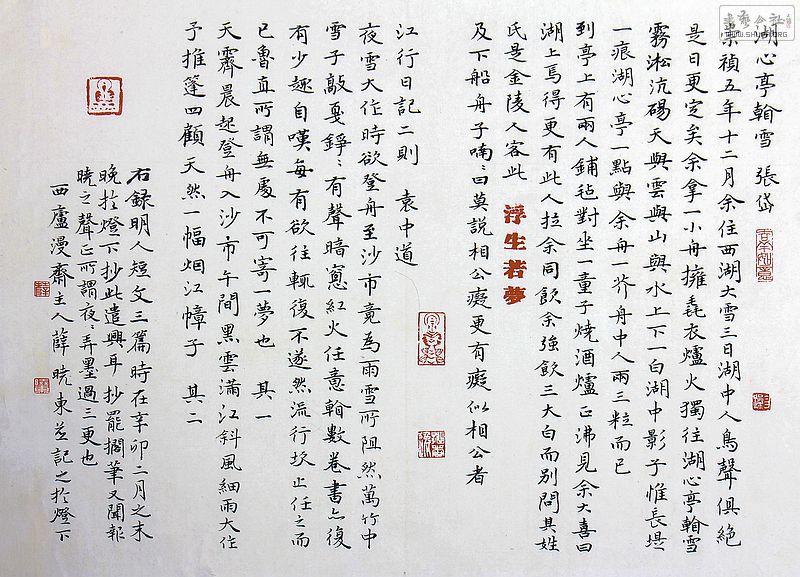 湖心亭看雪 張岱
崇禎五年十二月余住西湖大雪三日湖中人鳥聲俱絶
是日更定矣余拿一小舟擁毳衣爐火獨往湖心亭看雪
霧淞沆碭天與雲與山與水上下一白湖中影子惟長堤
一痕湖心亭一點與余舟一芥舟中人兩三粒而已
到亭上有兩人鋪毡對坐一童子燒酒爐正沸見余大喜曰
湖上焉得更有此人拉余同飲余強飲三大白而別問其姓
氏是金陵人客此
浮生若夢
及下船舟子喃々曰莫說相公癡更有癡似相公者
江行日記二則 袁中道
夜雪大作時欲登舟至沙市竟為雨雪所阻然萬竹中
雪子敲戛錚々有聲暗窻紅火任意看數卷書亦復
有少趣自嘆每有欲往輒復不遂然流行坎止任之而
已魯直所謂無處不可寄一夢也 其一
天霽晨起登舟入沙市午間黑雲滿江斜風細雨大作
予推篷四顧天然一幅烟江幛子 其二
右録明人短文三篇時在辛卯二月之末
晚於燈下抄此遣興耳抄罷擱筆又聞報
曉之聲正所謂夜々弄墨過三更也
西廬漫齋主人薛曉東并記之於燈下